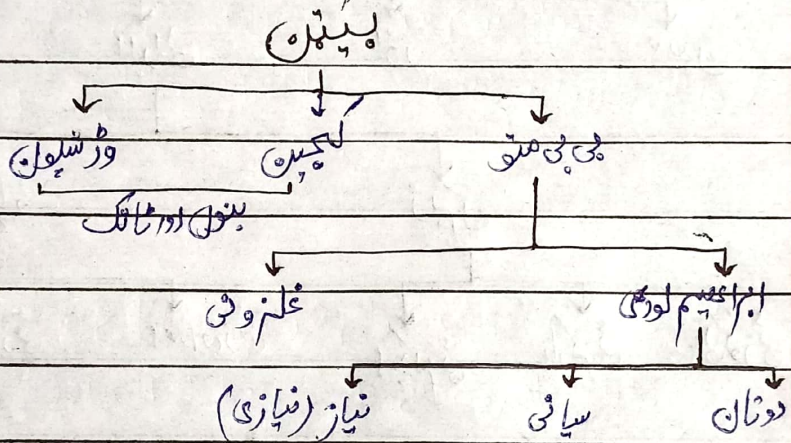 بیٹن
بی بی متو کجین وڑشپون
بنوں اور ٹانک
ابراھیم لودھی غلزوئی
دوتان سیانی نیاز (نیازی)